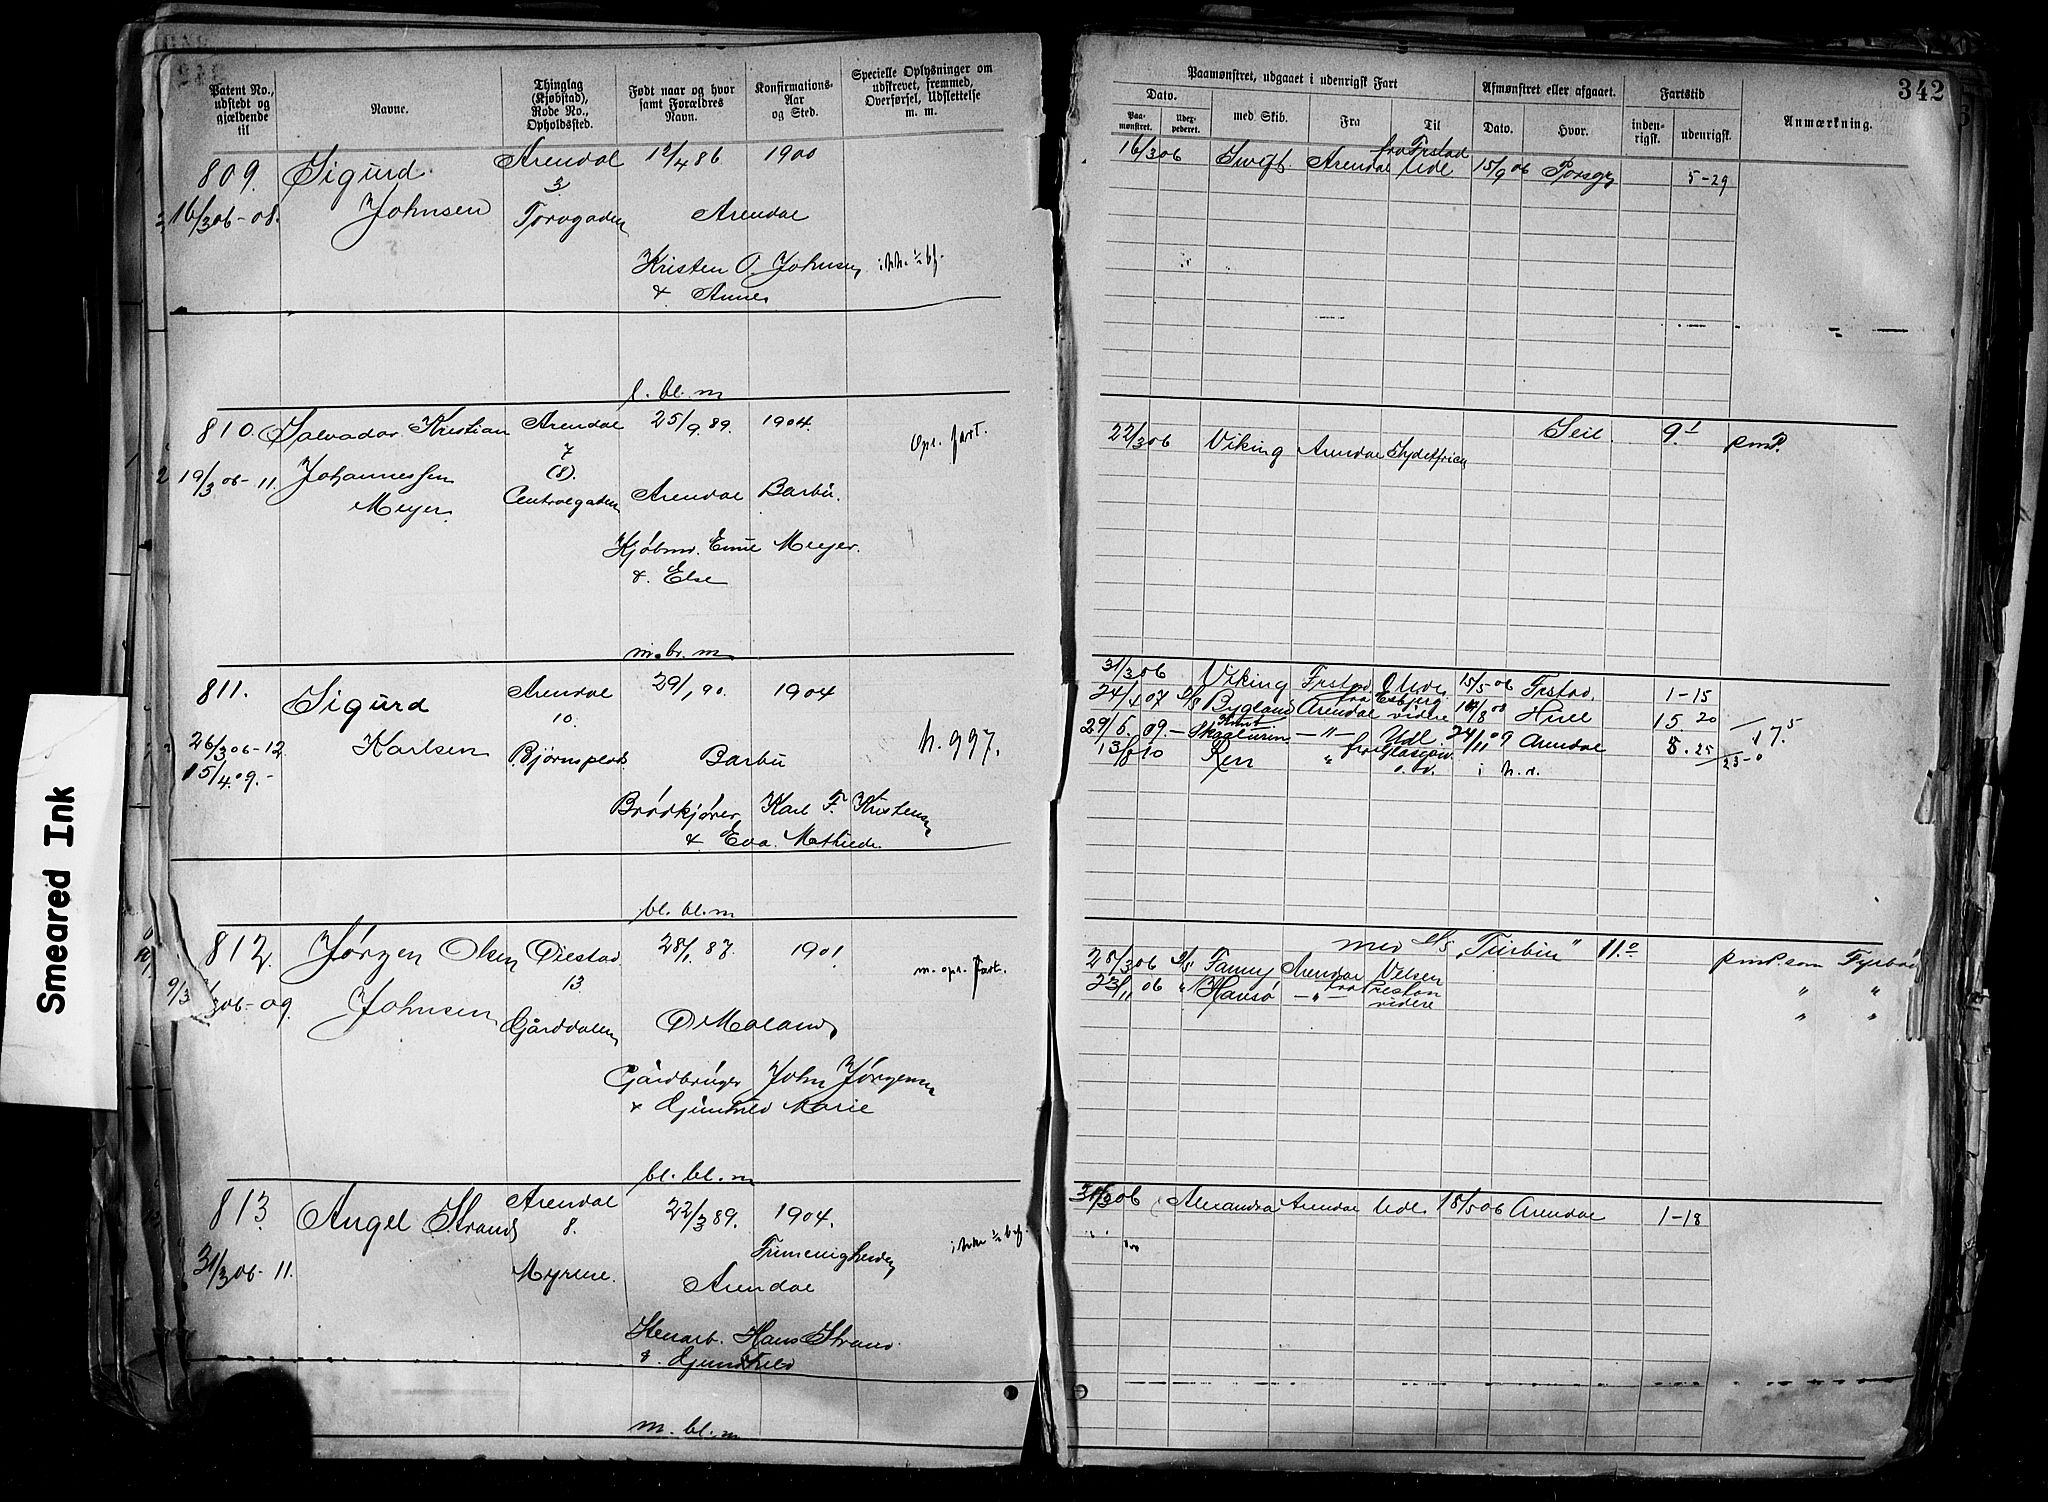 Smeared Ink
342
Patent No., udstedt og gjældende til
Navne.
Thinglag (Kjøbstad), Rode No., Opholdssted.
Født naar og hvor samt Forældres Navn.
Konfirmations-Aar og Sted.
Specielle Oplysninger om udskrevet, fremmed, Overførsel, Udslettelse m. m.
Paamønstret, udgaaet i udenrigsk Fart
Afmønstret eller afgaaet.
Fartstid
Anmærkning.
Dato.
Paamønstret.
Udexpederet.
med Skib.
Fra
Til
Dato.
Hvor.
indenrigsk.
udenrigsk.
809. Sigurd Arendal 12/4 86 1900
3
16/3 06-08. Johnsen Torvgaden Arendal
Kristen O. Johnsen
& Anne
16/3 06 Swift Arendal fra Frstad Udl 15/9 06 Porsgr 5-29
l. bl. m
810. Salvador Kristian Arendal 25/9 89. 1904.
7
19/3 06-11. Johannessen (8). Arendal Barbu. Opr. fart.
Meyer Centralgaden
Kjøbm. Emil Meyer.
& Else
22/3 06 Viking Arendal Sydafrica Seil. 9 1 pmP.
m. br. m
811. Sigurd Arendal 29/1 90. 1904
10.
26/3 06-12. Karlsen Bjørnsplads Barbu h. 997.
15/4 09-
Brødkjører Karl F. Kristensen
& Eva Mathilde.
31/3 06 Viking Frstad Udl 15/5 06 Frstad. 1-15
24/4 07 D/S Bygland Arendal fra Esbjerg videre 8 08 Hull 15 20
29/5 09 Arendal 5. 25 17.5
13/8 10 Ren " fra Glasgow i h. v. 23-0
bl. bl. m
812. Jørgen Olsen Øiestad 28/1 87. 1901.
13.
06-09. Johnsen Gårddalen Ø Moland m. opr. fart.
Gårdbruger John Jørgensen
& Gunhild Marie
med S/S "Turbin" 11.0
28/3 06 D/S Fanny Arendal Velsen pmP. som Fyrbø
23/11 06 " Havsø -"- fra Preston videre " "
" "
bl. bl. m
813. Angel Strand Arendal 22/3 89. 1904.
8.
31/3 06-11. Myrene. Arendal Frimenigheden
Stenarb. Hans Strand
& Gunhild
31/3 06 Alexandra Arendal Udl. 18/5 06 Arendal 1-18
m. bl. m